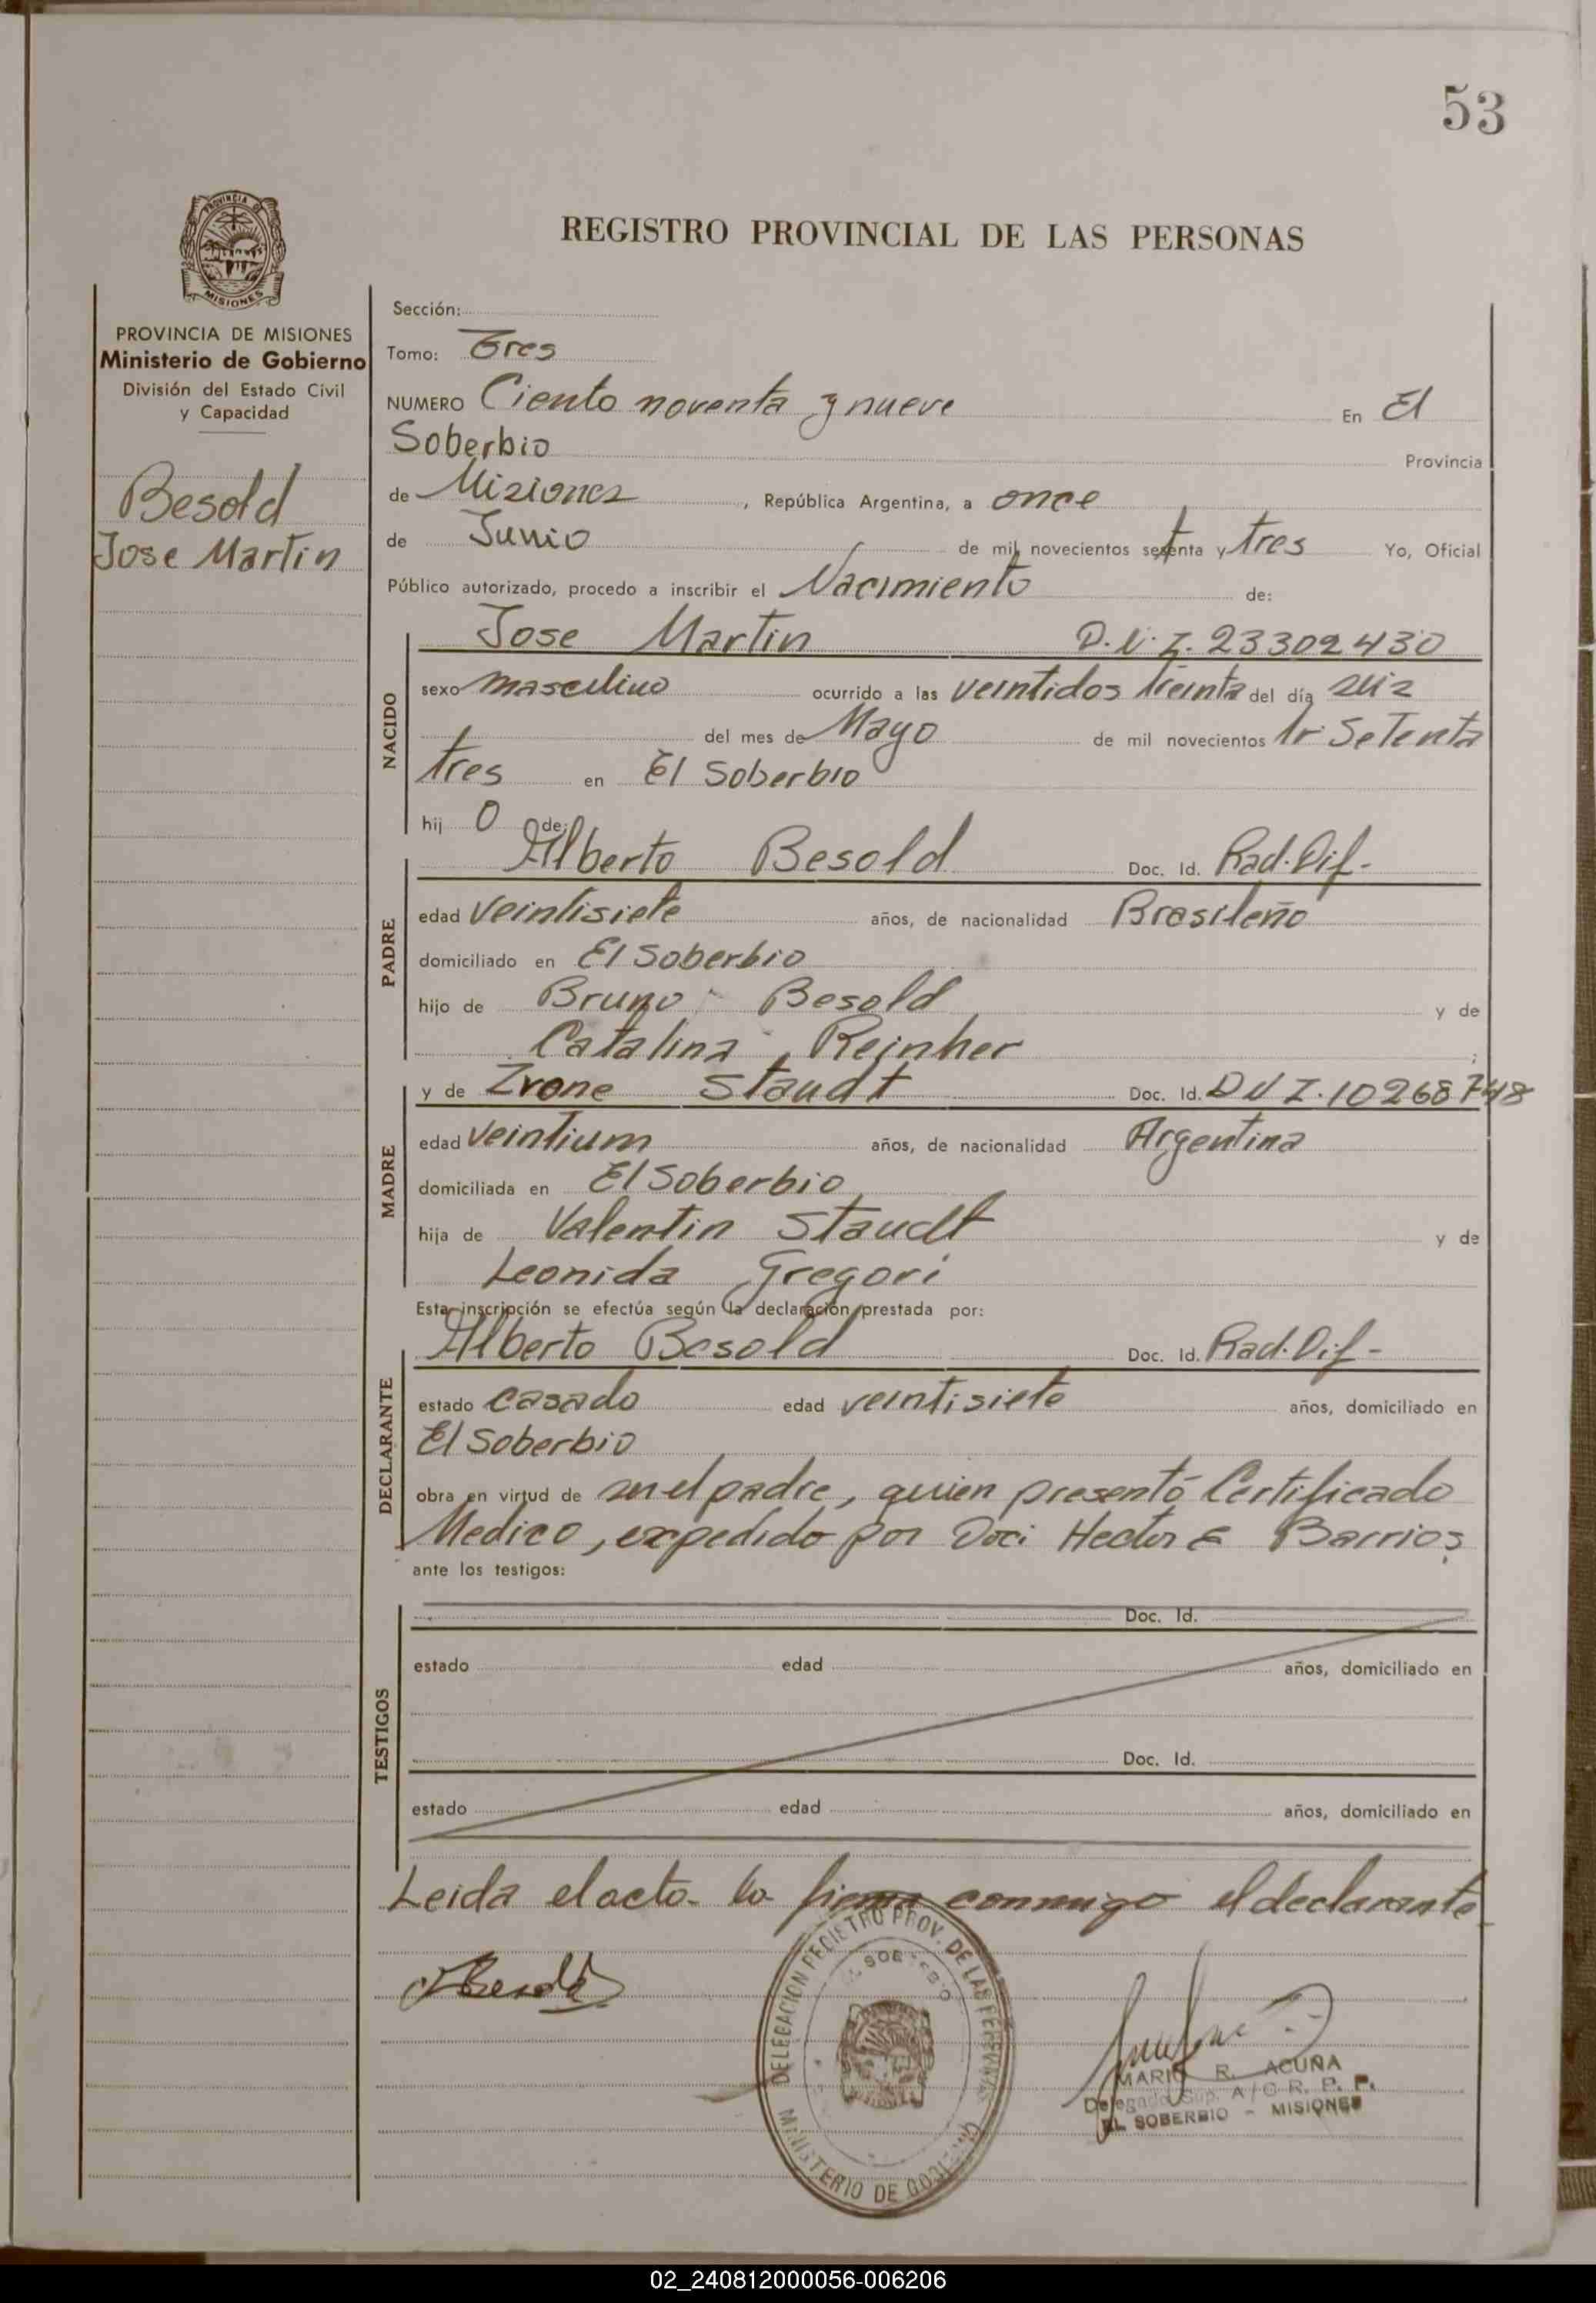 53
REGISTRO PROVINCIAL DE LAS PERSONAS
PROVINCIA DE
MISIONES
PROVINCIA DE MISIONES
Ministerio de Gobierno
División del Estado Civil
y Capacidad
Besold
Jose Martin
Sección:
Tomo: Tres
NUMERO Ciento noventa y nueve En El
Soberbio Provincia
de Misiones, República Argentina, a once
de Junio de mil novecientos setenta y tres Yo, Oficial
Público autorizado, procedo a inscribir el Nacimiento de:
NACIDO
Jose Martin D.N.I. 23302430
sexo masculino ocurrido a las veintidos treinta del día seis
del mes de Mayo de mil novecientos Setenta
tres en El Soberbio
hij o de:
PADRE
Alberto Besold Doc. Id. Rad. Dif-
edad veintisiete años, de nacionalidad Brasileño
domiciliado en El Soberbio
hijo de Bruno Besold y de
Catalina Reinher ;
MADRE
y de Irone Staudt Doc. Id. DNI. 10268748
edad veintium años, de nacionalidad Argentina
domiciliada en El Soberbio
hija de Valentin Staudt y de
Leonida Gregori
Esta inscripción se efectúa según la declaración prestada por:
DECLARANTE
Alberto Besold Doc. Id. Rad. Dif-
estado casado edad veintisiete años, domiciliado en
El Soberbio
obra en virtud de ser el padre, quien presentó Certificado
Medico, expedido por Hector E Barrios
ante los testigos:
TESTIGOS
Doc. Id.
estado edad años, domiciliado en
Doc. Id.
estado edad años, domiciliado en
Leida el acta la firma conmigo el declarante
DELEGACION REGISTRO PROV. DE LAS PERSONAS
EL SOBERBIO
MINISTERIO DE GOBIERNO
MARIO R. ACUÑA
Delegado Sup. A/C R. P. P.
EL SOBERBIO - MISIONES
02_240812000056-006206